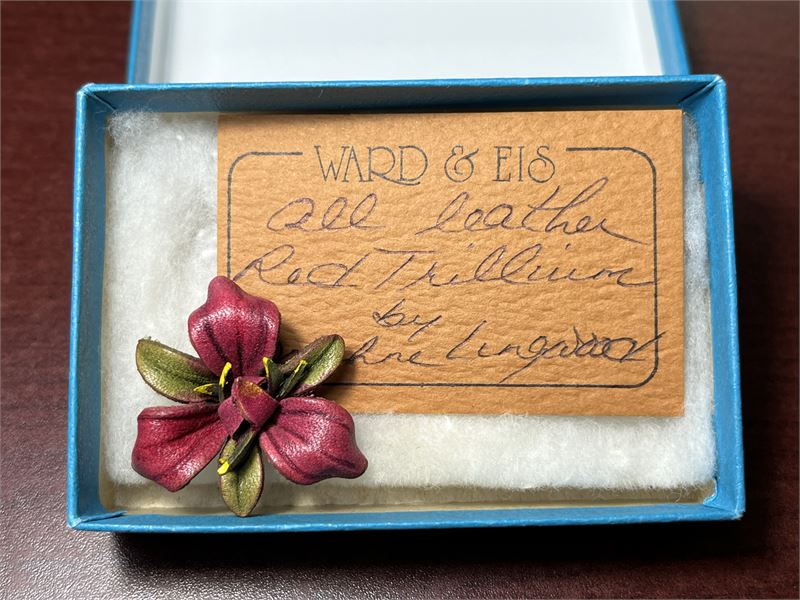 WARD & EIS
all leather
Red Trillium
by
Lingwood